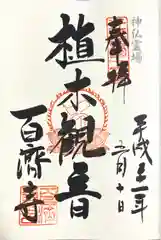 神仏霊場
奉拝
平成二十一年
五月十日
植木観音
百済寺